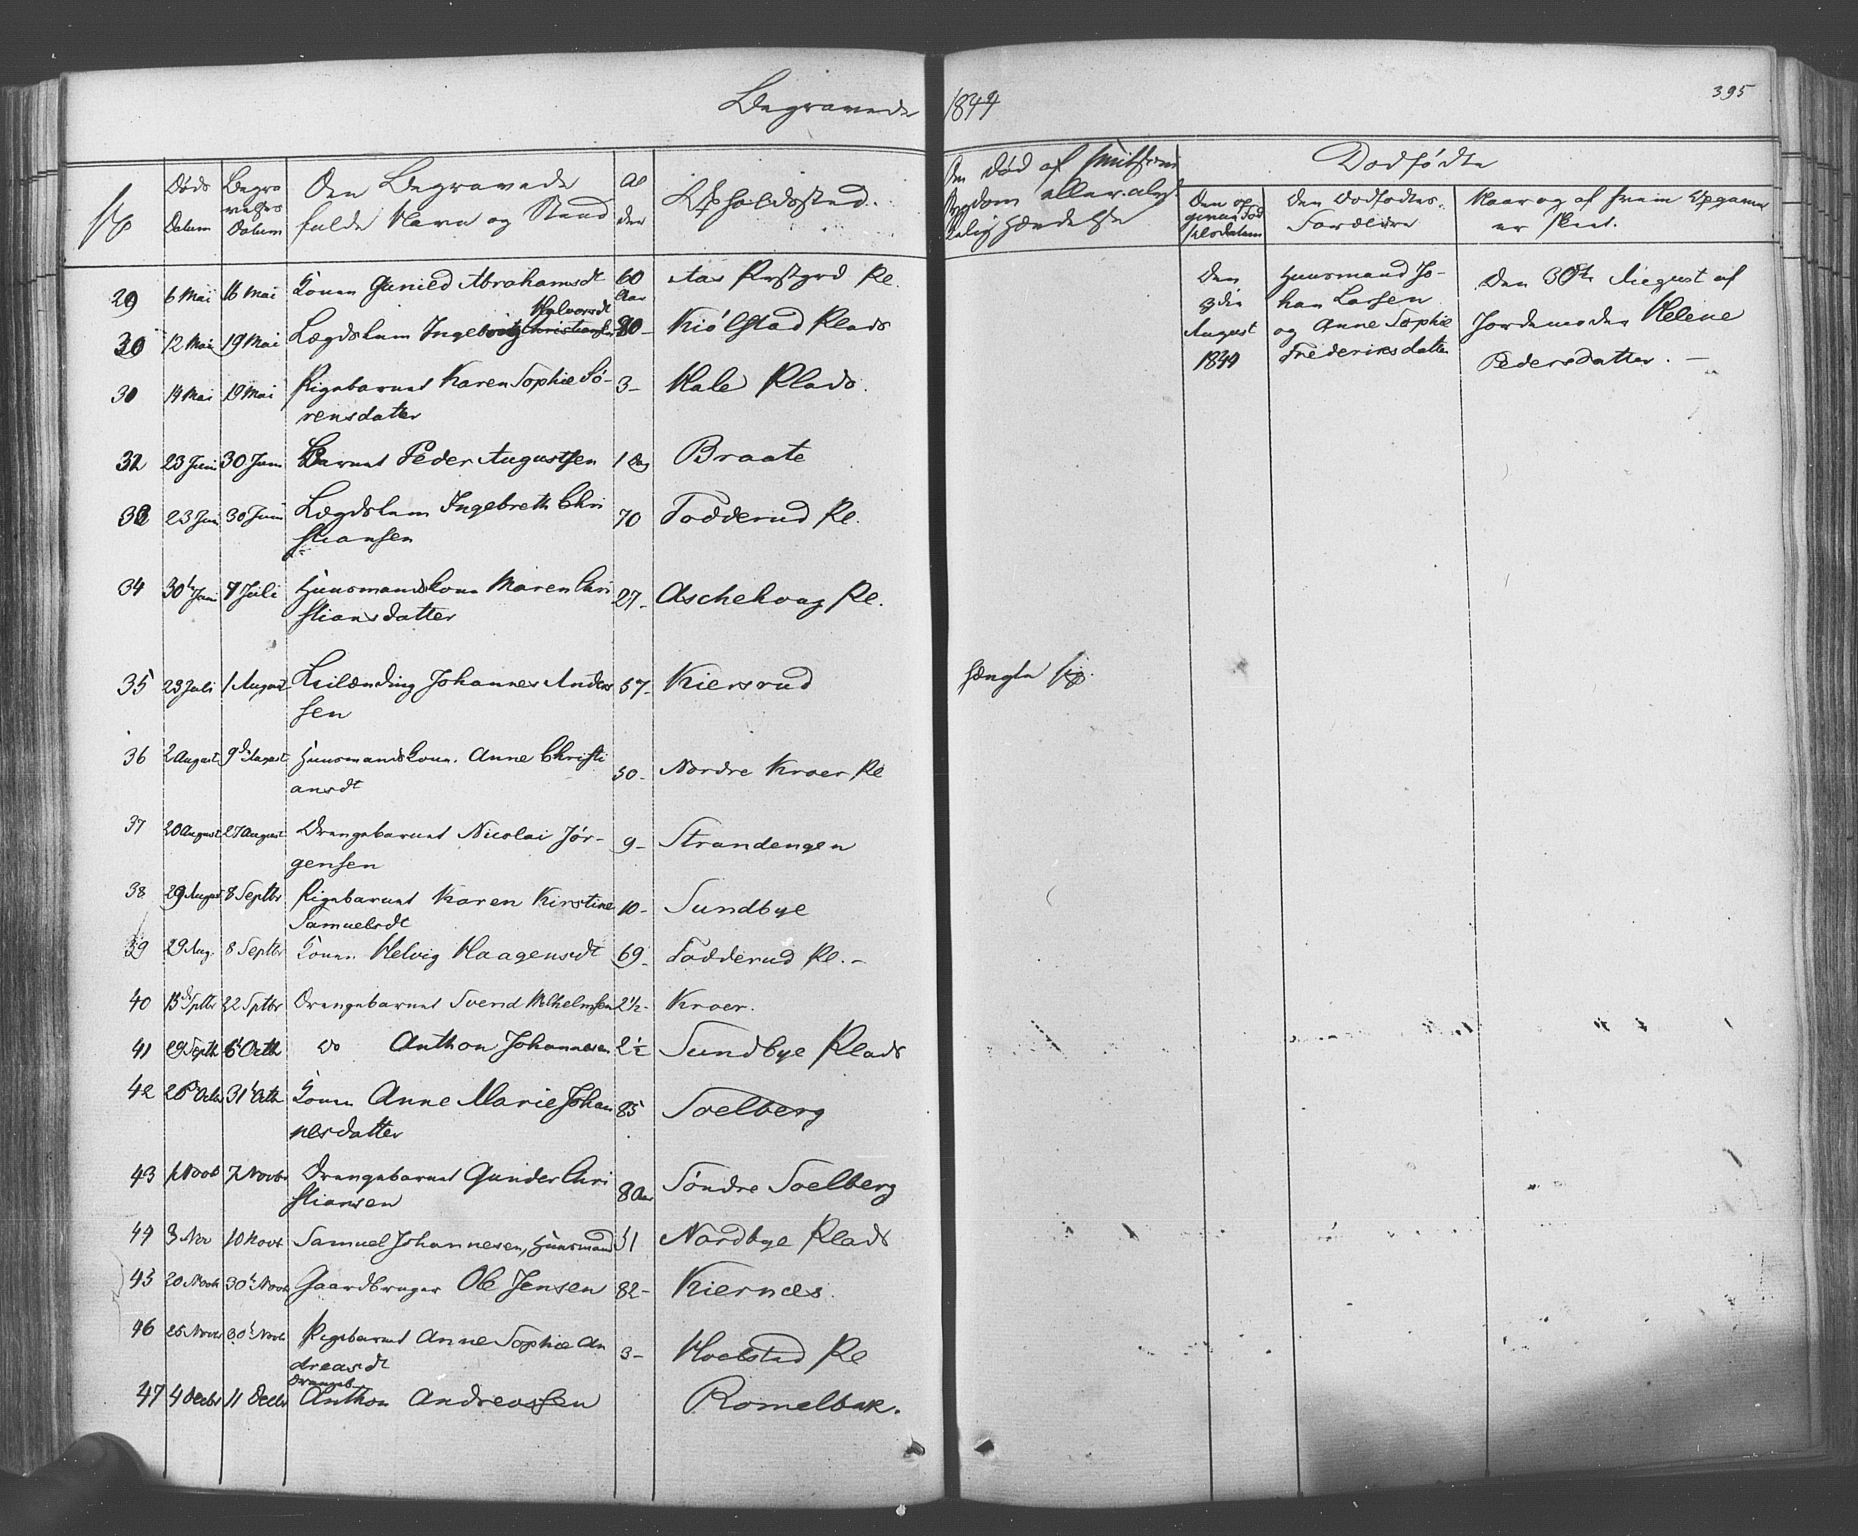 Begravede 1844
395
No
Døds Datum
Begravelses Datum
Den Begravede fulde Navn og Stand
Alder
Opholdsstad.
Om død af smitsom Sygdom eller ulykkelig Hændelse
Dødfødte
Den opgivne Fødselsdatum
Den Dødfødtes Forældre
Naar og af hvem Opgaven er skeet.
29 6 Mai 16 Mai Konen Gunild Abrahamsdt 60 Aar Aas Præstgrd Pl.
Halvorsdt
30 12 Mai 19 Mai Lægdslem Ingeborg Christiansen 80 - Kiølstad Plads
30 14 Mai 19 Mai Pigebarnet Karen Sophie Sø- 3 - Hale Plads.
rensdatter
32 23 Juni 30 Juni Barnet Peder Augustsen 1 Dag Braate
33 23 Juni 30 Juni Lægdslem Ingebreth Chri 70 Fodderud Pl.
stiansen
34 30t Juni 7 Juli Huusmandskone Maren Chri 27 - Aschehoug Pl.
stiansdatter
35 23 Juli 1 August Johannes Anders 57 - Kiersrud hængte sig.
sen
36 2 August 9de August Huusmandskone. Anne Christi 50 - Nordre Kroer Pl
ansdt
37 20 August 27 August Drengebarnet Nicolai Jør- 9 - Strandengen
gensen
38 29 August 8 Septbr Pigebarnet Karen Kirstine 10 - Sundbye
Samuelsdt
39 29 Aug. 8 Septbr Konen Helvig Haagensdt 69 - Fodderud Pl. -
40 15de Sptbr 22 Sptbr Drengebarnet Svend Wilhelmsen 2½ - Kroer.
41 29 Septb 6t Octb do Anthon Johannesen 2½ Sundbye Plads
42 26 Octb 31t Octb Konen Anne Marie Johan 85 Soelberg
nesdatter
43 1 Novb 7 Novbr Drengebarnet Gunder Chri 8 Aar Søndre Soelberg
stiansen
44 3 Nov 10 Novb Samuel Johannesen, Huusmand 51 Nordbye Plads
45 20 Novb 30t Novb Gaardbruger Ole Jensen 82 - Kiernæs.
46 25 Novb 30t Novb Pigebarnet Anne Sophie An 3 - Holstad Pl
dreasdt
Drengeb
47 4 Decbr 11 Decbr Anthon Andreassen Romelbak.
Den 3die August 1844
Huusmand Johan Larsen og Anne Sophie Frederiksdatter
Den 30te August af Jordemoder Helene Pedersdatter. -